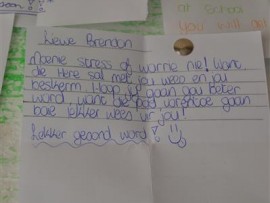 at School
You will
Liewe Brendon
Moenie stress of worrie nie! Want
die Here sal met jou wees en jou
beskerm. Hoop jy gaan gou beter
word, want die pad vorentoe gaan
baie lekker wees vir jou!
Lekker gesond word!